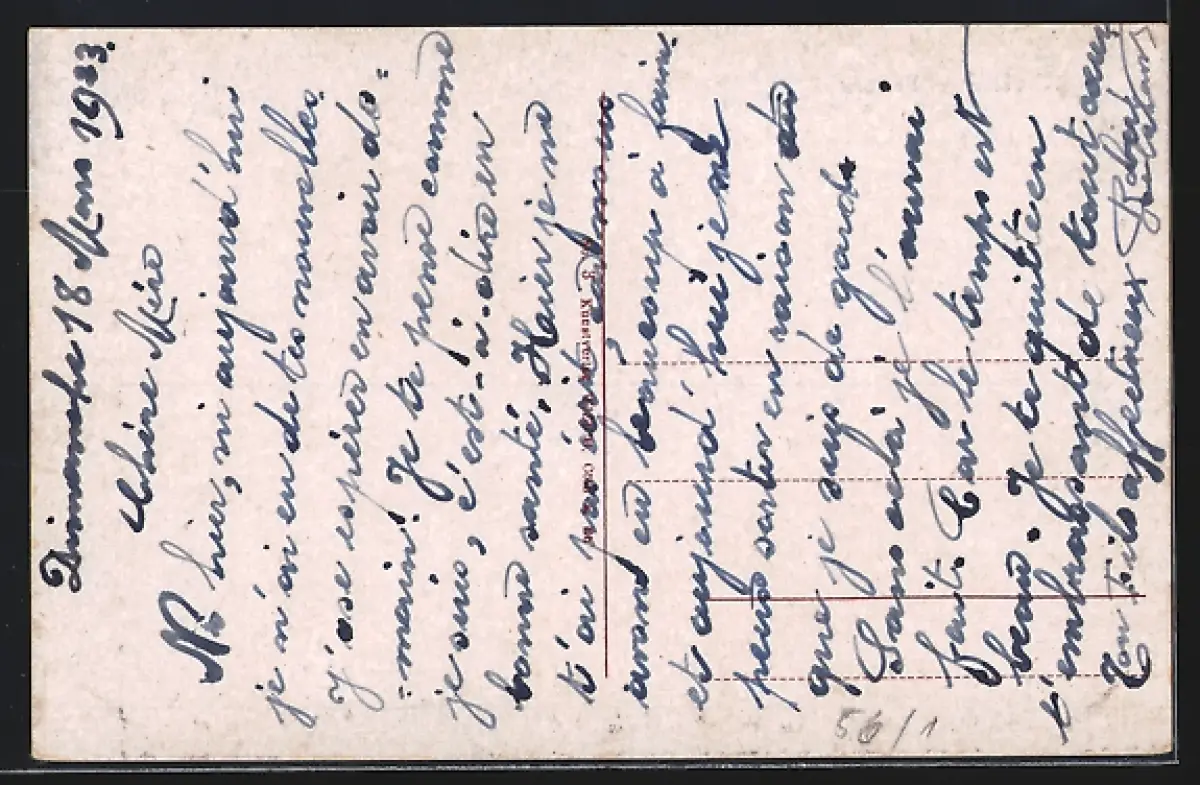 Dimanche 18 Mars 1923.
Chère Mère
Ni hier, ni aujourd'hui
je n'ai eu de tes nouvelles.
J'ose espérer en avoir de-
-main. Je te pense comme
je suis, c'est-à-dire en
bonne santé. Hier je ne
t'ai pas écrit
ayant eu beaucoup à faire.
et aujourd'hui je ne
peux sortir en raison
que je suis de garde.
Sans cela je l'aurai
fait. Car le temps est
beau. Je te quitte en
t'embrassant de tout cœur
Ton fils affectueux Robert
56/1